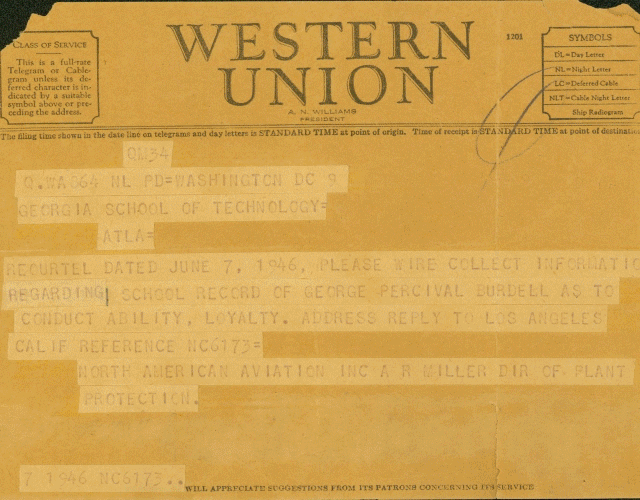 CLASS OF SERVICE
This is a full-rate
Telegram or Cable-
gram unless its de-
ferred character is in-
dicated by a suitable
symbol above or pre-
ceding the address.
WESTERN
UNION
1201
A. N. WILLIAMS
PRESIDENT
SYMBOLS
DL=Day Letter
NL=Night Letter
LC=Deferred Cable
NLT=Cable Night Letter
Ship Radiogram
The filing time shown in the date line on telegrams and day letters is STANDARD TIME at point of origin. Time of receipt is STANDARD TIME at point of destinatio
QM34
Q.WA564 NL PD=WASHINGTON DC 9
GEORGIA SCHOOL OF TECHNOLOGY=
ATLA=
REOURTEL DATED JUNE 7, 1946, PLEASE WIRE COLLECT INFORMATIO
REGARDING SCHOOL RECORD OF GEORGE PERCIVAL BURDELL AS TO
CONDUCT ABILITY, LOYALTY. ADDRESS REPLY TO LOS ANGELES
CALIF REFERENCE NC6173=
NORTH AMERICAN AVIATION INC A R MILLER DIR OF PLANT
PROTECTION.
7 1946 NC6173..
WILL APPRECIATE SUGGESTIONS FROM ITS PATRONS CONCERNING ITS SERVICE